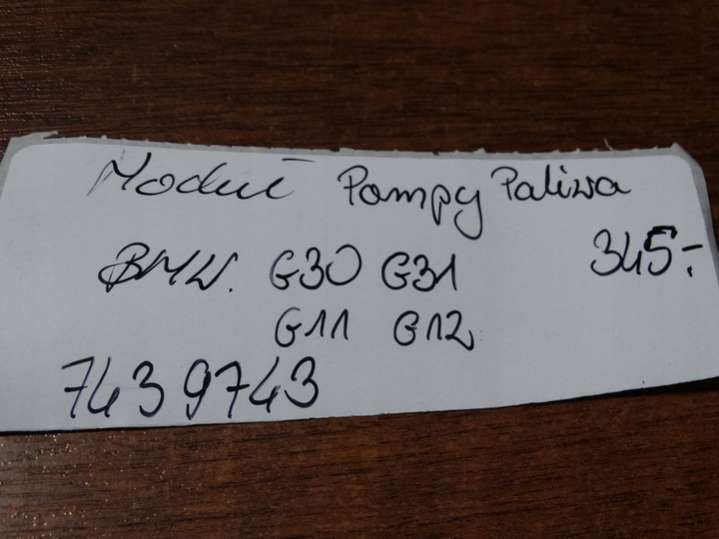 Moduł Pompy Paliwa
BMW. G30 G31 345,-
G11 G12
7439743